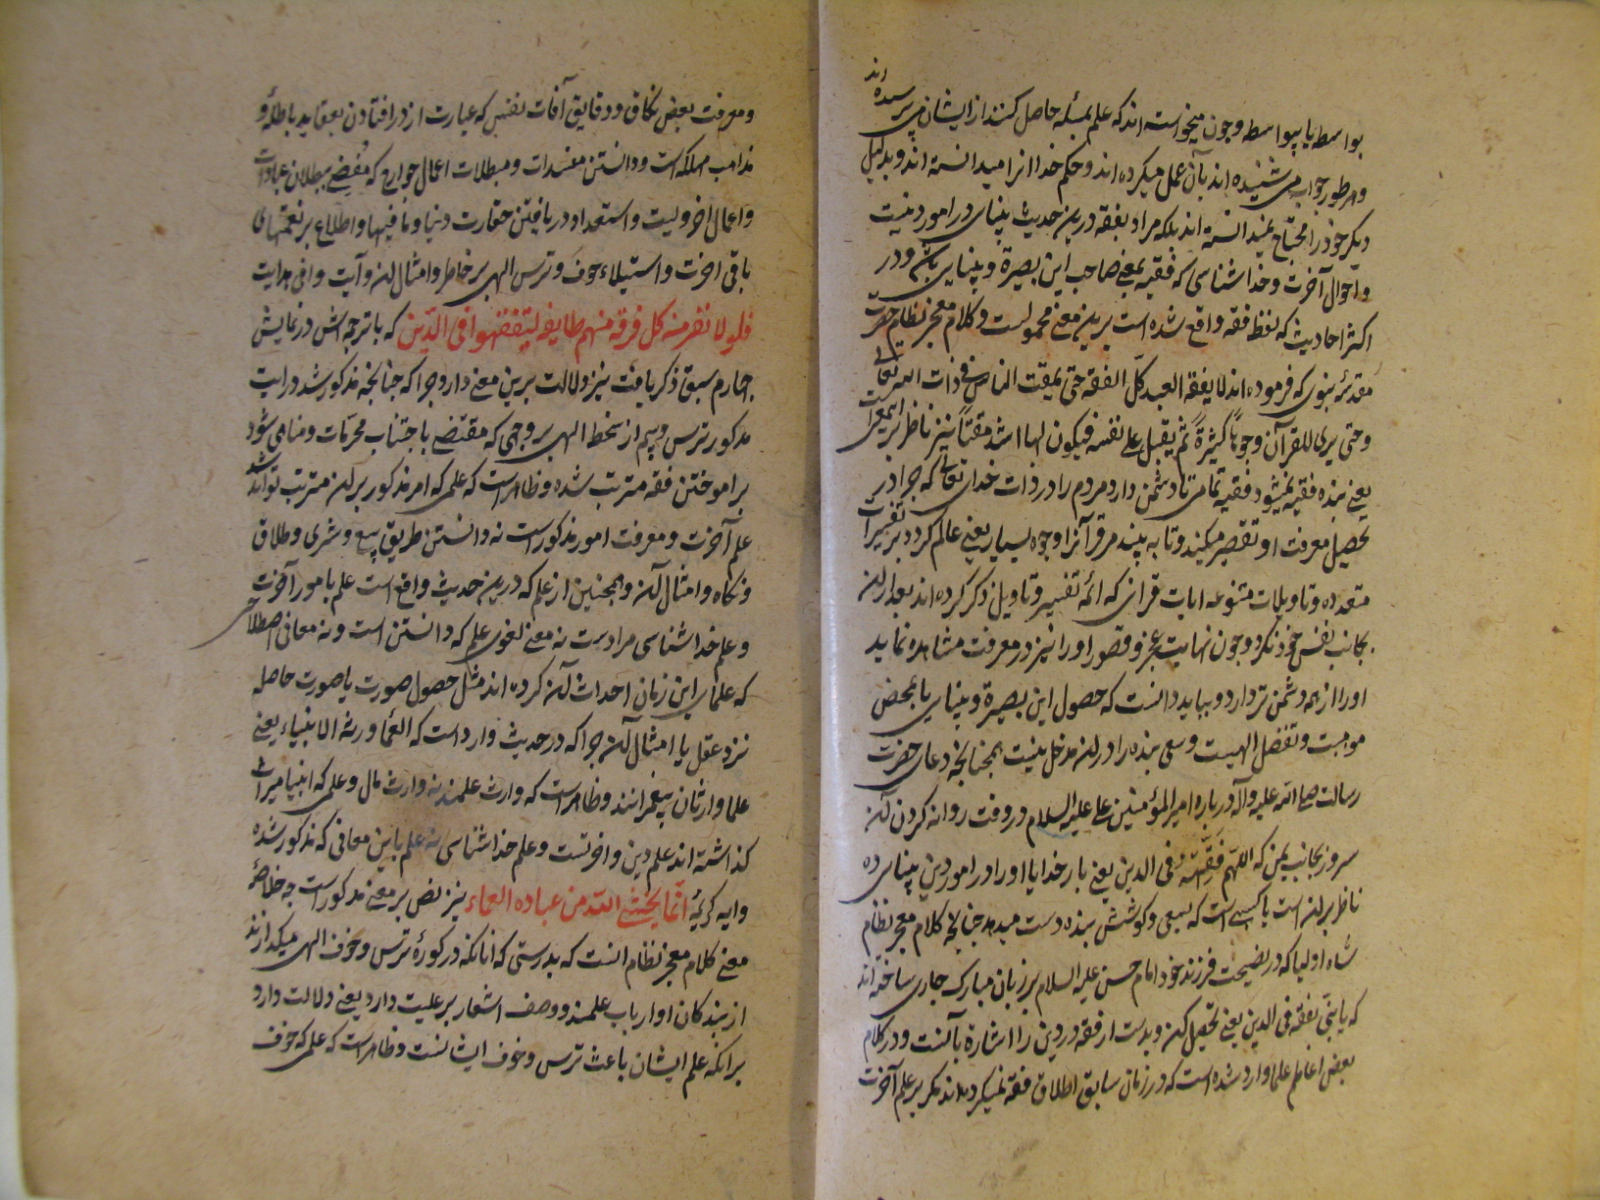 بواسطه یا بیواسطه وچون میخواسته اند که علم بمسئله حاصل کنند از ایشان می پرسیده اند
وبهر طور جواب می شنیده اند بآن عمل میکرده اند وحکم خدا آنرا میدانسته اند وبدلیل
دیگر خود را محتاج نمیدانسته اند بلکه مراد بفقه درین حدیث بینای در امور دینست
واحوال آخرت وخدا شناسی که فقیه بمعنی صاحب این بصیرة وبینای باشد ودر
اکثر احادیث که لفظ فقه واقع شده است برین معنی محمولست وکلام معجز نظام حضرت
مقدسه نبوی که فرموده اند لا یفقه العبد کل الفقه حتی یمقت الناس فی ذات الله تعالی
وحتی یری للقرآن وجوهاً کثیرةً ثم یقبل علی نفسه فیکون لها اشد مقتاً نیز ناظر باین معنی است
یعنی بنده فقیه نمیشود فقیه تمامی تا دشمن دارد مردم را در ذات خدای تعالی که چرا در
تحصیل معرفت او تقصیر میکنند وتا به بیند مر قرآنرا وجوه بسیار یعنی عالم کردد بر تفسیرات
متعدده وتاویلات متنوعه ایات قرانی که ائمه تفسیر وتاویل ذکر کرده اند بعد ازان
بجانب نفس خود نکرد وچون نهایت عجز وقصور اورا نیز در معرفت مشاهده نماید
اورا از همه دشمن تر دارد وبباید دانست که حصول این بصیرة وبینای یا بمحض
موهبت وتفضل الهیست وسعی بنده را دران مدخل نیست همچنانچه دعای حضرت
رسالت صلی الله علیه وآله در باره امیر المؤمنین علی علیه السلام در وقت روانه کردن آن
سرور بجانب یمن که اللهم فقهه فی الدین یعنی بار خدایا اورا در امور دین بینای ده
ناظر بران است یا کسبی است که بسعی وکوشش بنده دست میدهد چنانچه کلام معجز نظام
شاه اولیا که در نصیحت فرزند خود امام حسن علیه السلام بر زبان مبارک جاری ساخته اند
که یا بنی تفقه فی الدین یعنی تحصیل کن وبدست ار فقه در دین را اشارة بآنست ودر کلام
بعض اعاظم علما وارد شده است که در زمان سابق اطلاق فقه نمیکرده اند مکر بر علم آخرت
ومعرفت بعض نکات ودقایق آفات نفس که عبارت از در افتادن بعقاید باطله و
مذاهب مهلکه است ودانستن مفسدات ومبطلات اعمال جوارح که مفضی ببطلان عبادات
واعمال اخرویست واستعداد دریافتن حقارت دنیا وما فیها واطلاع بر نعمتهای
باقی اخرت واستیلاء خوف وترس الهی بر خاطر وامثال ان وآیت وافی هدایت
فلو لا نفر من کل فرقه منهم طایفه لیتفقهوا فی الدین که با ترجمه اش در نمایش
چهارم سبق ذکر یافت نیز دلالت برین معنی دارد چرا که چنانچه مذکور شد درایت
مذکور ترس وبیم از سخط الهی بروجهی که مقتضی باجتناب محرمات ومناهی شود
بر اموختن فقه مترتب شده وظاهر است که علمی که امر مذکور بران مترتب تواند شد
علم آخرت ومعرفت امور مذکور است نه دانستن طریق بیع وشری وطلاق
ونکاه وامثال آن وهمچنین از علم که درین حدیث واقع است علم بامور آخرت
وعلم خدا شناسی مراد است نه معنی لغوی علم که دانستن است ونه معانی اصطلاحی
که علمای این زمان احداث آن کرده اند مثل حصول صورت یا صورت حاصله
نزد عقل یا امثال آن چرا که در حدیث وارد است که العلماء ورثة الانبیاء یعنی
علما وارثان پیغمبرانند وظاهر است که وارث علمند نه وارث مال وعلمی که انبیا میراث
کذاشته اند علم دین واخرتست وعلم خدا شناسی نه علم باین معانی که مذکور شده
وایه کریمه انما یخشی الله من عباده العلماء نیز نص بر معنی مذکور است چه خلاصه
معنی کلام معجز نظام انست که بدرستی که انانکه در کوره ترس وخوف الهی میکدازند
از بندکان او ارباب علمند ووصف اشعار بر علیت دارد یعنی دلالت دارد
بر انکه علم ایشان باعث ترس وخوف ایشانست وظاهر است که علمی که خوف